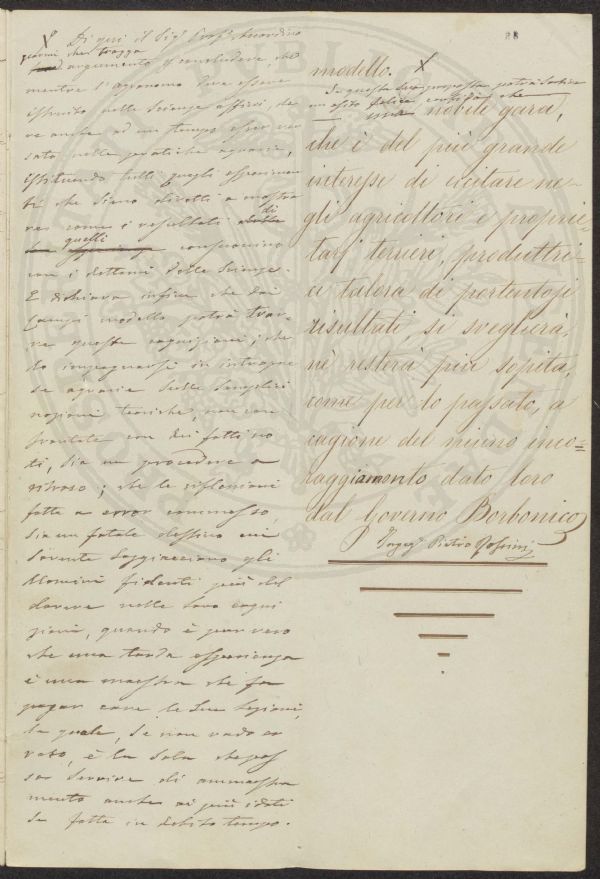 Di poi il Sig.r
giacché che tragga
argomento per concludere, che
mentre l'agronomo deve essere
istruito nelle Scienze affini, de-
ve anche ad un tempo esser ver-
sato nelle pratiche agrarie,
istituendo tutti quegli esperimen-
ti che siano diretti a mostra-
re come i resultati di
quelli consuonino
con i dettami delle Scienze.
E dichiara infine che dai
Campi modello potrà trar-
re queste cognizioni; che
lo impegnarsi in intrapre-
se agrarie sulle semplici
nozioni teoriche, non con-
frontate con dei fatti no-
ti, sia un procedere a
ritroso; che le riflessioni
fatte a error commesso
sia un fatale destino cui
sovente soggiacciono gli
Uomini fidenti più del
dovere nelle loro cogni-
zioni, quando è pur vero
che una tarda esperienza
è una maestra che fa
pagar care le sue lezioni,
la quale, se non vado er-
rato, è la sola che pos-
sa servire di ammaestra-
mento anche ai più idioti
se fatta in debito tempo.
88
modello. X
Se questa sua proposta potrà sortire
un esito felice, confido che
una nobile gara,
che è del più grande
interesse di eccitare ne-
gli agricoltori e proprie-
tarj terrieri, produttri-
ci talora di portentosi
risultati, si sveglierà,
nè resterà più sopita,
come per lo passato, a
cagione del niuno inco-
raggiamento dato loro
dal Governo Borbonico
Ingeg.r Pietro